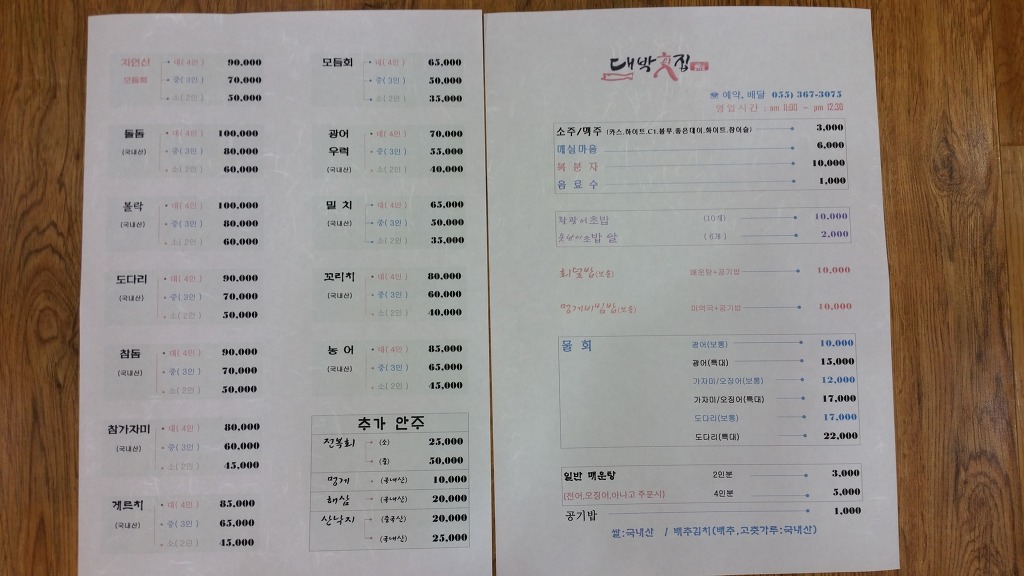 자연산 대( 4인 ) 90,000
모듬회 중( 3인 ) 70,000
소( 2인 ) 50,000
돌돔 대( 4인 ) 100,000
(국내산) 중( 3인 ) 80,000
소( 2인 ) 60,000
볼락 대( 4인 ) 100,000
(국내산) 중( 3인 ) 80,000
소( 2인 ) 60,000
도다리 대( 4인 ) 90,000
(국내산) 중( 3인 ) 70,000
소( 2인 ) 50,000
참돔 대( 4인 ) 90,000
(국내산) 중( 3인 ) 70,000
소( 2인 ) 50,000
참가자미 대( 4인 ) 80,000
(국내산) 중( 3인 ) 60,000
소( 2인 ) 45,000
게르치 대( 4인 ) 85,000
(국내산) 중( 3인 ) 65,000
소( 2인 ) 45,000
모듬회 대( 4인 ) 65,000
중( 3인 ) 50,000
소( 2인 ) 35,000
광어 대( 4인 ) 70,000
우럭 중( 3인 ) 55,000
(국내산) 소( 2인 ) 40,000
밀치 대( 4인 ) 65,000
(국내산) 중( 3인 ) 50,000
소( 2인 ) 35,000
꼬리치 대( 4인 ) 80,000
(국내산) 중( 3인 ) 60,000
소( 2인 ) 40,000
농어 대( 4인 ) 85,000
(국내산) 중( 3인 ) 65,000
소( 2인 ) 45,000
추가 안주
전복회 (소) 25,000
(중) 50,000
멍게 (국내산) 10,000
해삼 (국내산) 20,000
산낙지 (중국산) 20,000
(국내산) 25,000
대박횟집
☎ 예약, 배달 055) 367-3075
영업시간 : am 11:00 ~ pm 12:30
소주/맥주 (카스,하이트,C1,블루,좋은데이,화이트,참이슬) 3,000
매실마을 6,000
복분자 10,000
음료수 1,000
활광어초밥 (10개) 10,000
초밥 알 ( 6개 ) 2,000
회덮밥(보통) 매운탕+공기밥 10,000
멍게비빔밥(보통) 미역국+공기밥 10,000
물회 광어(보통) 10,000
광어(특대) 15,000
가자미/오징어(보통) 12,000
가자미/오징어(특대) 17,000
도다리(보통) 17,000
도다리(특대) 22,000
일반 매운탕 2인분 3,000
(전어,오징어,아나고 주문시) 4인분 5,000
공기밥 1,000
쌀:국내산 / 배추김치(배추,고춧가루:국내산)